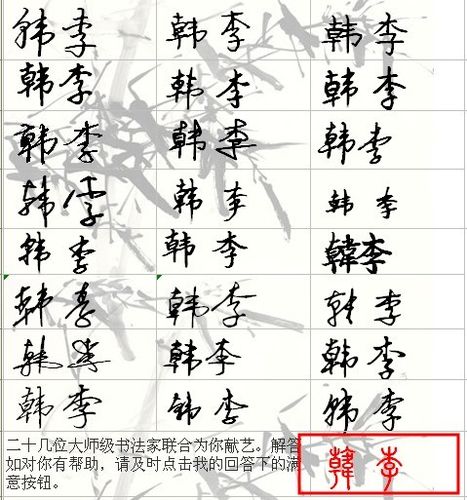 韩李 韩李 韩李
韩李 韩李 韩李
韩李 韩李 韩李
韩李 韩李 韩李
韩李 韩李 韓李
韩李 韩李 韩李
韩李 韩李 韩李
韩李 韩李 韩李
二十几位大师级书法家联合为你献艺。解答
如对你有帮助，请及时点击我的回答下的满
意按钮。
韓李